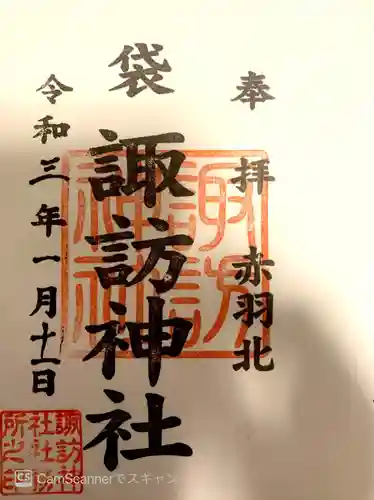 奉拝 赤羽北
袋 諏訪神社
令和三年一月十一日
諏訪神社
諏訪神社社務所之印
CS CamScannerでスキャン